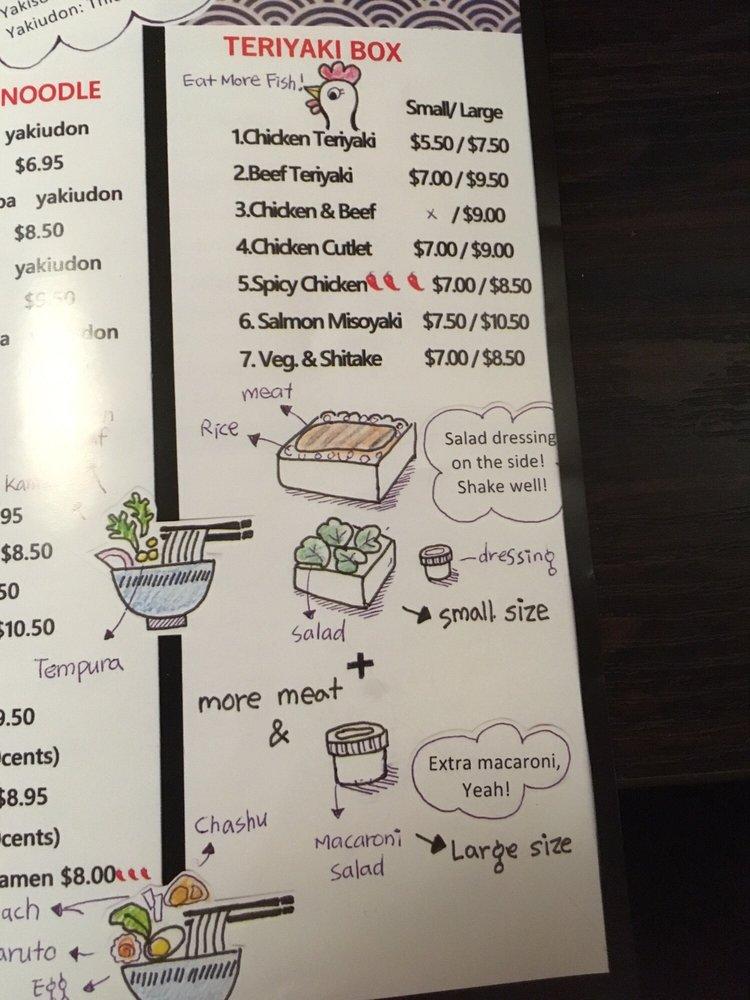 Yakiudon:
NOODLE
yakiudon
$6.95
yakiudon
$8.50
yakiudon
$9.50
$8.50
$10.50
Tempura
9.50
cents)
$8.95
cents)
$8.00
Egg
TERIYAKI BOX
Eat More Fish!
Small/ Large
1.Chicken Teriyaki $5.50 / $7.50
2.Beef Teriyaki $7.00 / $9.50
3.Chicken & Beef x / $9.00
4.Chicken Cutlet $7.00 / $9.00
5.Spicy Chicken $7.00 / $8.50
6. Salmon Misoyaki $7.50 / $10.50
7. Veg. & Shitake $7.00 / $8.50
meat
Rice
Salad dressing
on the side!
Shake well!
dressing
small size
Salad
+
more meat
&
Extra macaroni,
Yeah!
Chashu
Macaroni
Salad
Large size